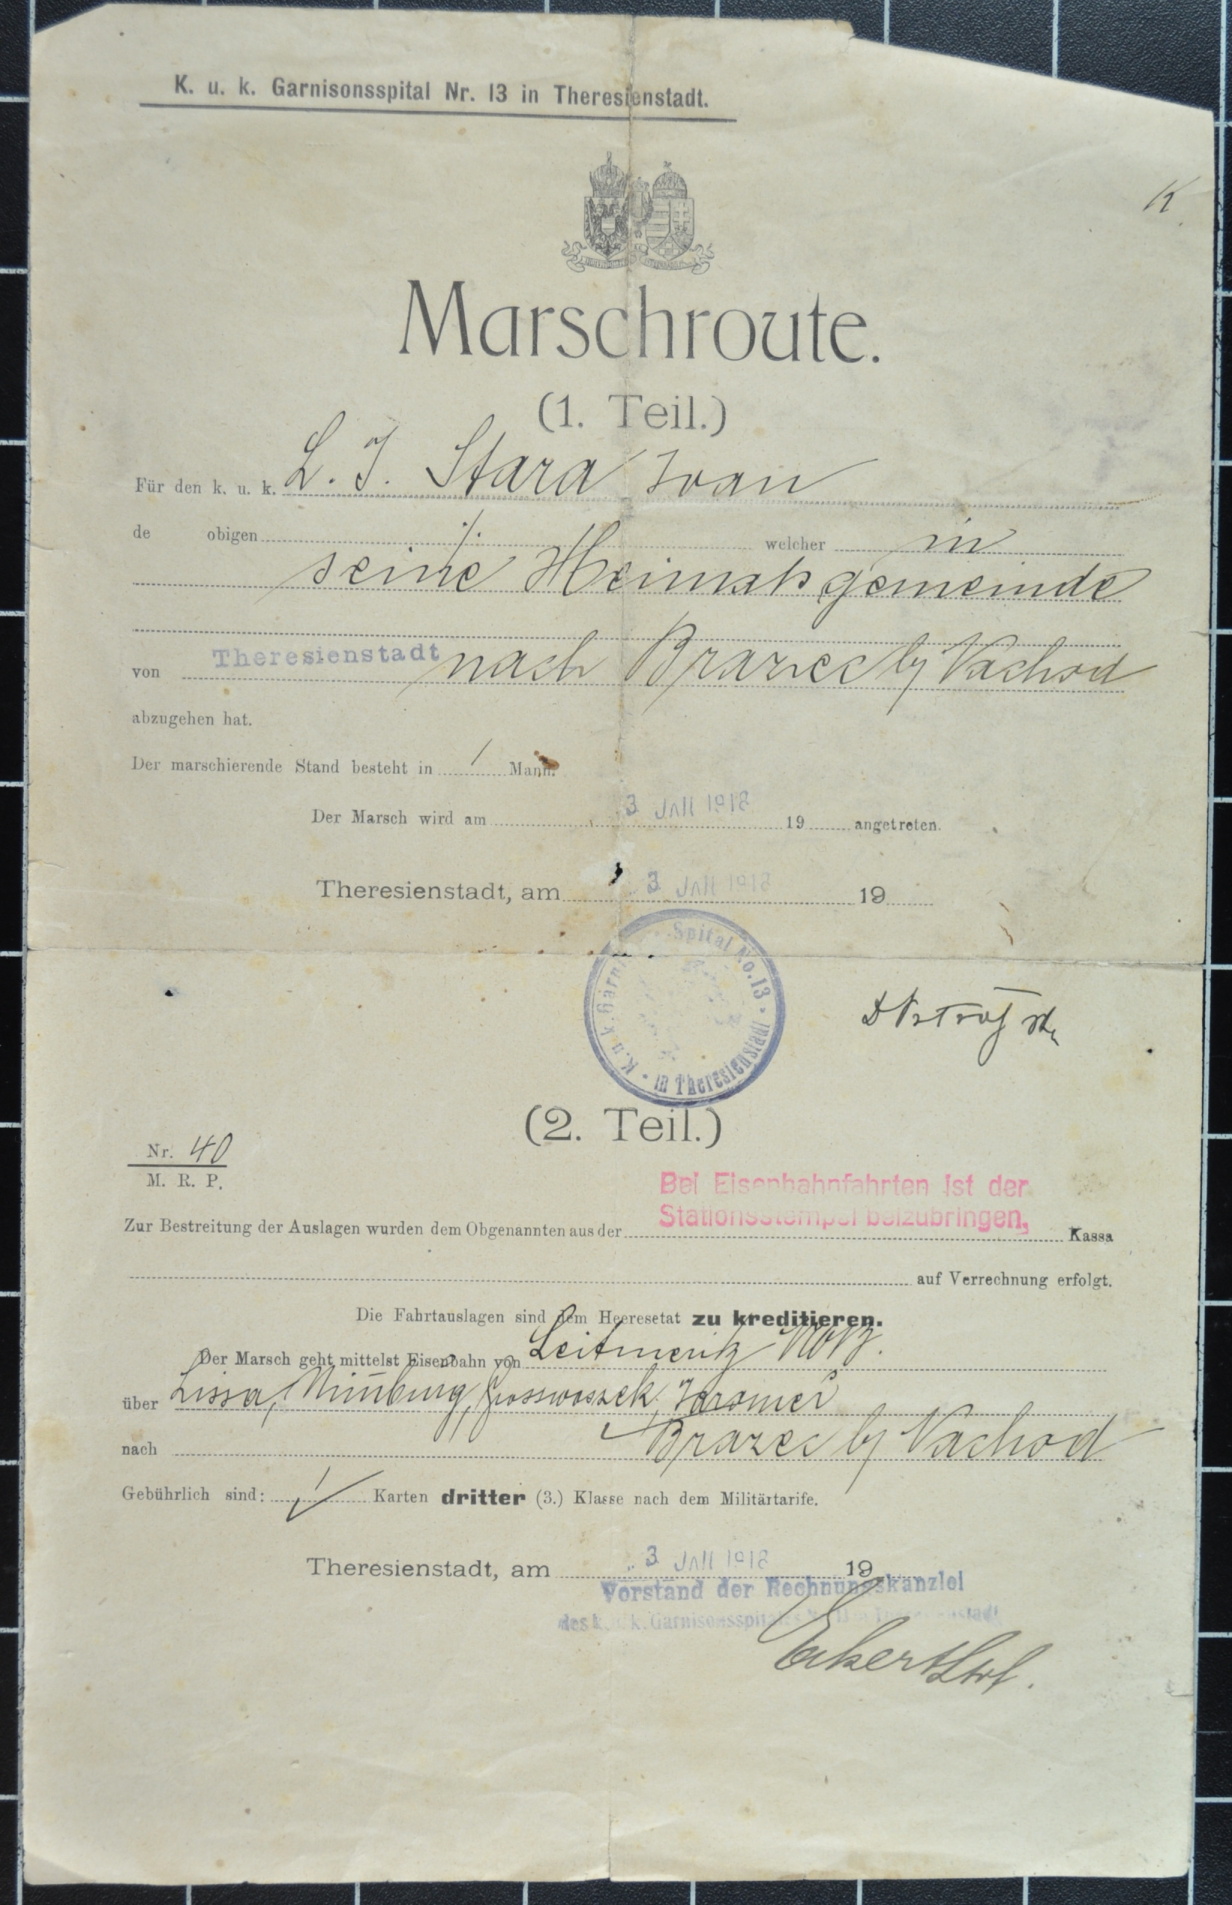 K. u. k. Garnisonsspital Nr. 13 in Theresienstadt.
K
Marschroute.
(1. Teil.)
Für den k. u. k. L. I. Stara Ivan
de obigen ./. welcher in
seine Heimatsgemeinde
von Theresienstadt nach Brazec by Nachod
abzugehen hat.
Der marschierende Stand besteht in 1 Mann.
Der Marsch wird am 3 JAN 1918 19 angetreten.
Theresienstadt, am 3 JAN 1918 19
K. u. k. Garn Spital No. 13 in Theresienstadt
(2. Teil.)
Nr. 40
M. R. P.
Bei Eisenbahnfahrten ist der
Stationsstempel beizubringen,
Zur Bestreitung der Auslagen wurden dem Obgenannten aus der Kassa
auf Verrechnung erfolgt.
Die Fahrtauslagen sind dem Heeresetat zu kreditieren.
Der Marsch geht mittelst Eisenbahn von Leitmeritz
über Lissa, Nimburg, Grosswossek, Jaromer
nach Brazec by Nachod
Gebührlich sind: 1 Karten dritter (3.) Klasse nach dem Militärtarife.
Theresienstadt, am 3 JAN 1918 19
Vorstand der Rechnungskanzlei
des k. u. k. Garnisonsspitales
Eckert